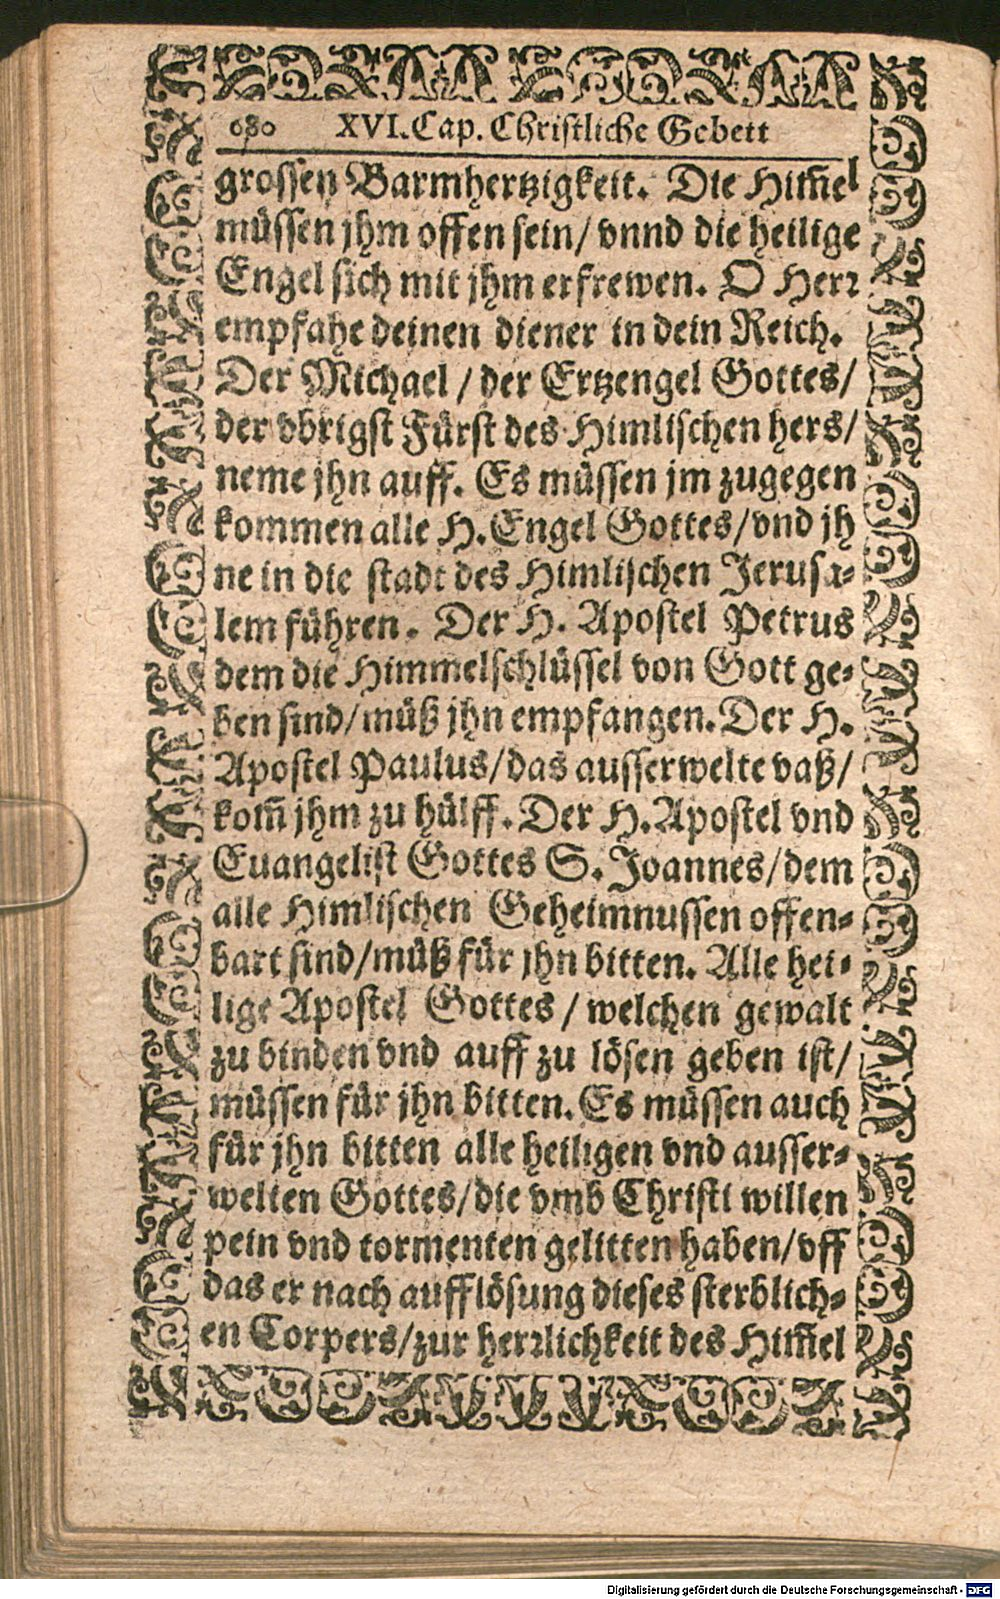 680 XVI. Cap. Christliche Gebett
grossen Barmhertzigkeit. Die Him̃el
müssen jhm offen sein/ vnnd die heilige
Engel sich mit jhm erfrewen. O Herꝛ
empfahe deinen diener in dein Reich.
Der Michael / der Ertzengel Gottes/
der vbrigst Fürst des Himlischen hers/
neme jhn auff. Es müssen jm zugegen
kommen alle H. Engel Gottes/vnd jh
ne in die stadt des Himlischen Jerusa-
lem führen. Der H. Apostel Petrus
dem die Himmelschlüssel von Gott ge-
ben sind/müß jhn empfangen. Der H.
Apostel Paulus/das ausserwelte vaß/
kom̃ jhm zu hülff. Der H. Apostel vnd
Euangelist Gottes S. Joannes/dem
alle Himlischen Geheimnussen offen-
bart sind/müß für jhn bitten. Alle hei-
lige Apostel Gottes / welchen gewalt
zu binden vnd auff zu lösen geben ist/
müssen für jhn bitten. Es müssen auch
für jhn bitten alle heiligen vnd ausser-
welten Gottes/die vmb Christi willen
pein vnd tormenten gelitten haben/vff
das er nach aufflösung dieses sterblich-
en Corpers/zur herꝛlichkeit des Him̃el
Digitalisierung gefördert durch die Deutsche Forschungsgemeinschaft - DFG